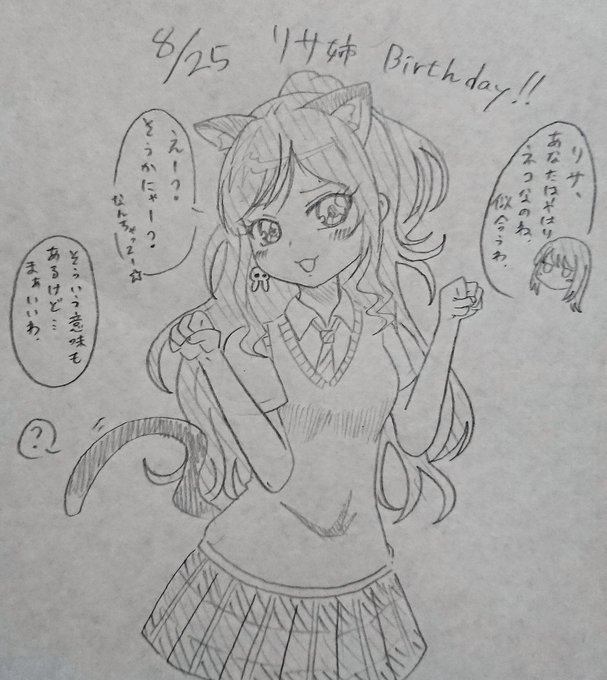 8/25 リサ姉 Birthday!!
リサ、
あなたはやはり
ネコなのね、
似合うわ、
えーっ。
そうかにゃーっ?
なんちゃってー☆
そういう意味も
あるけど…
まぁいいわ、
?